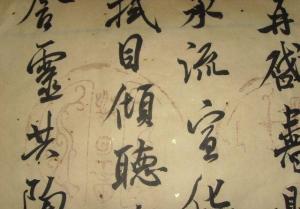 再啓
承流宣化
拭目傾聽
含靈共陶